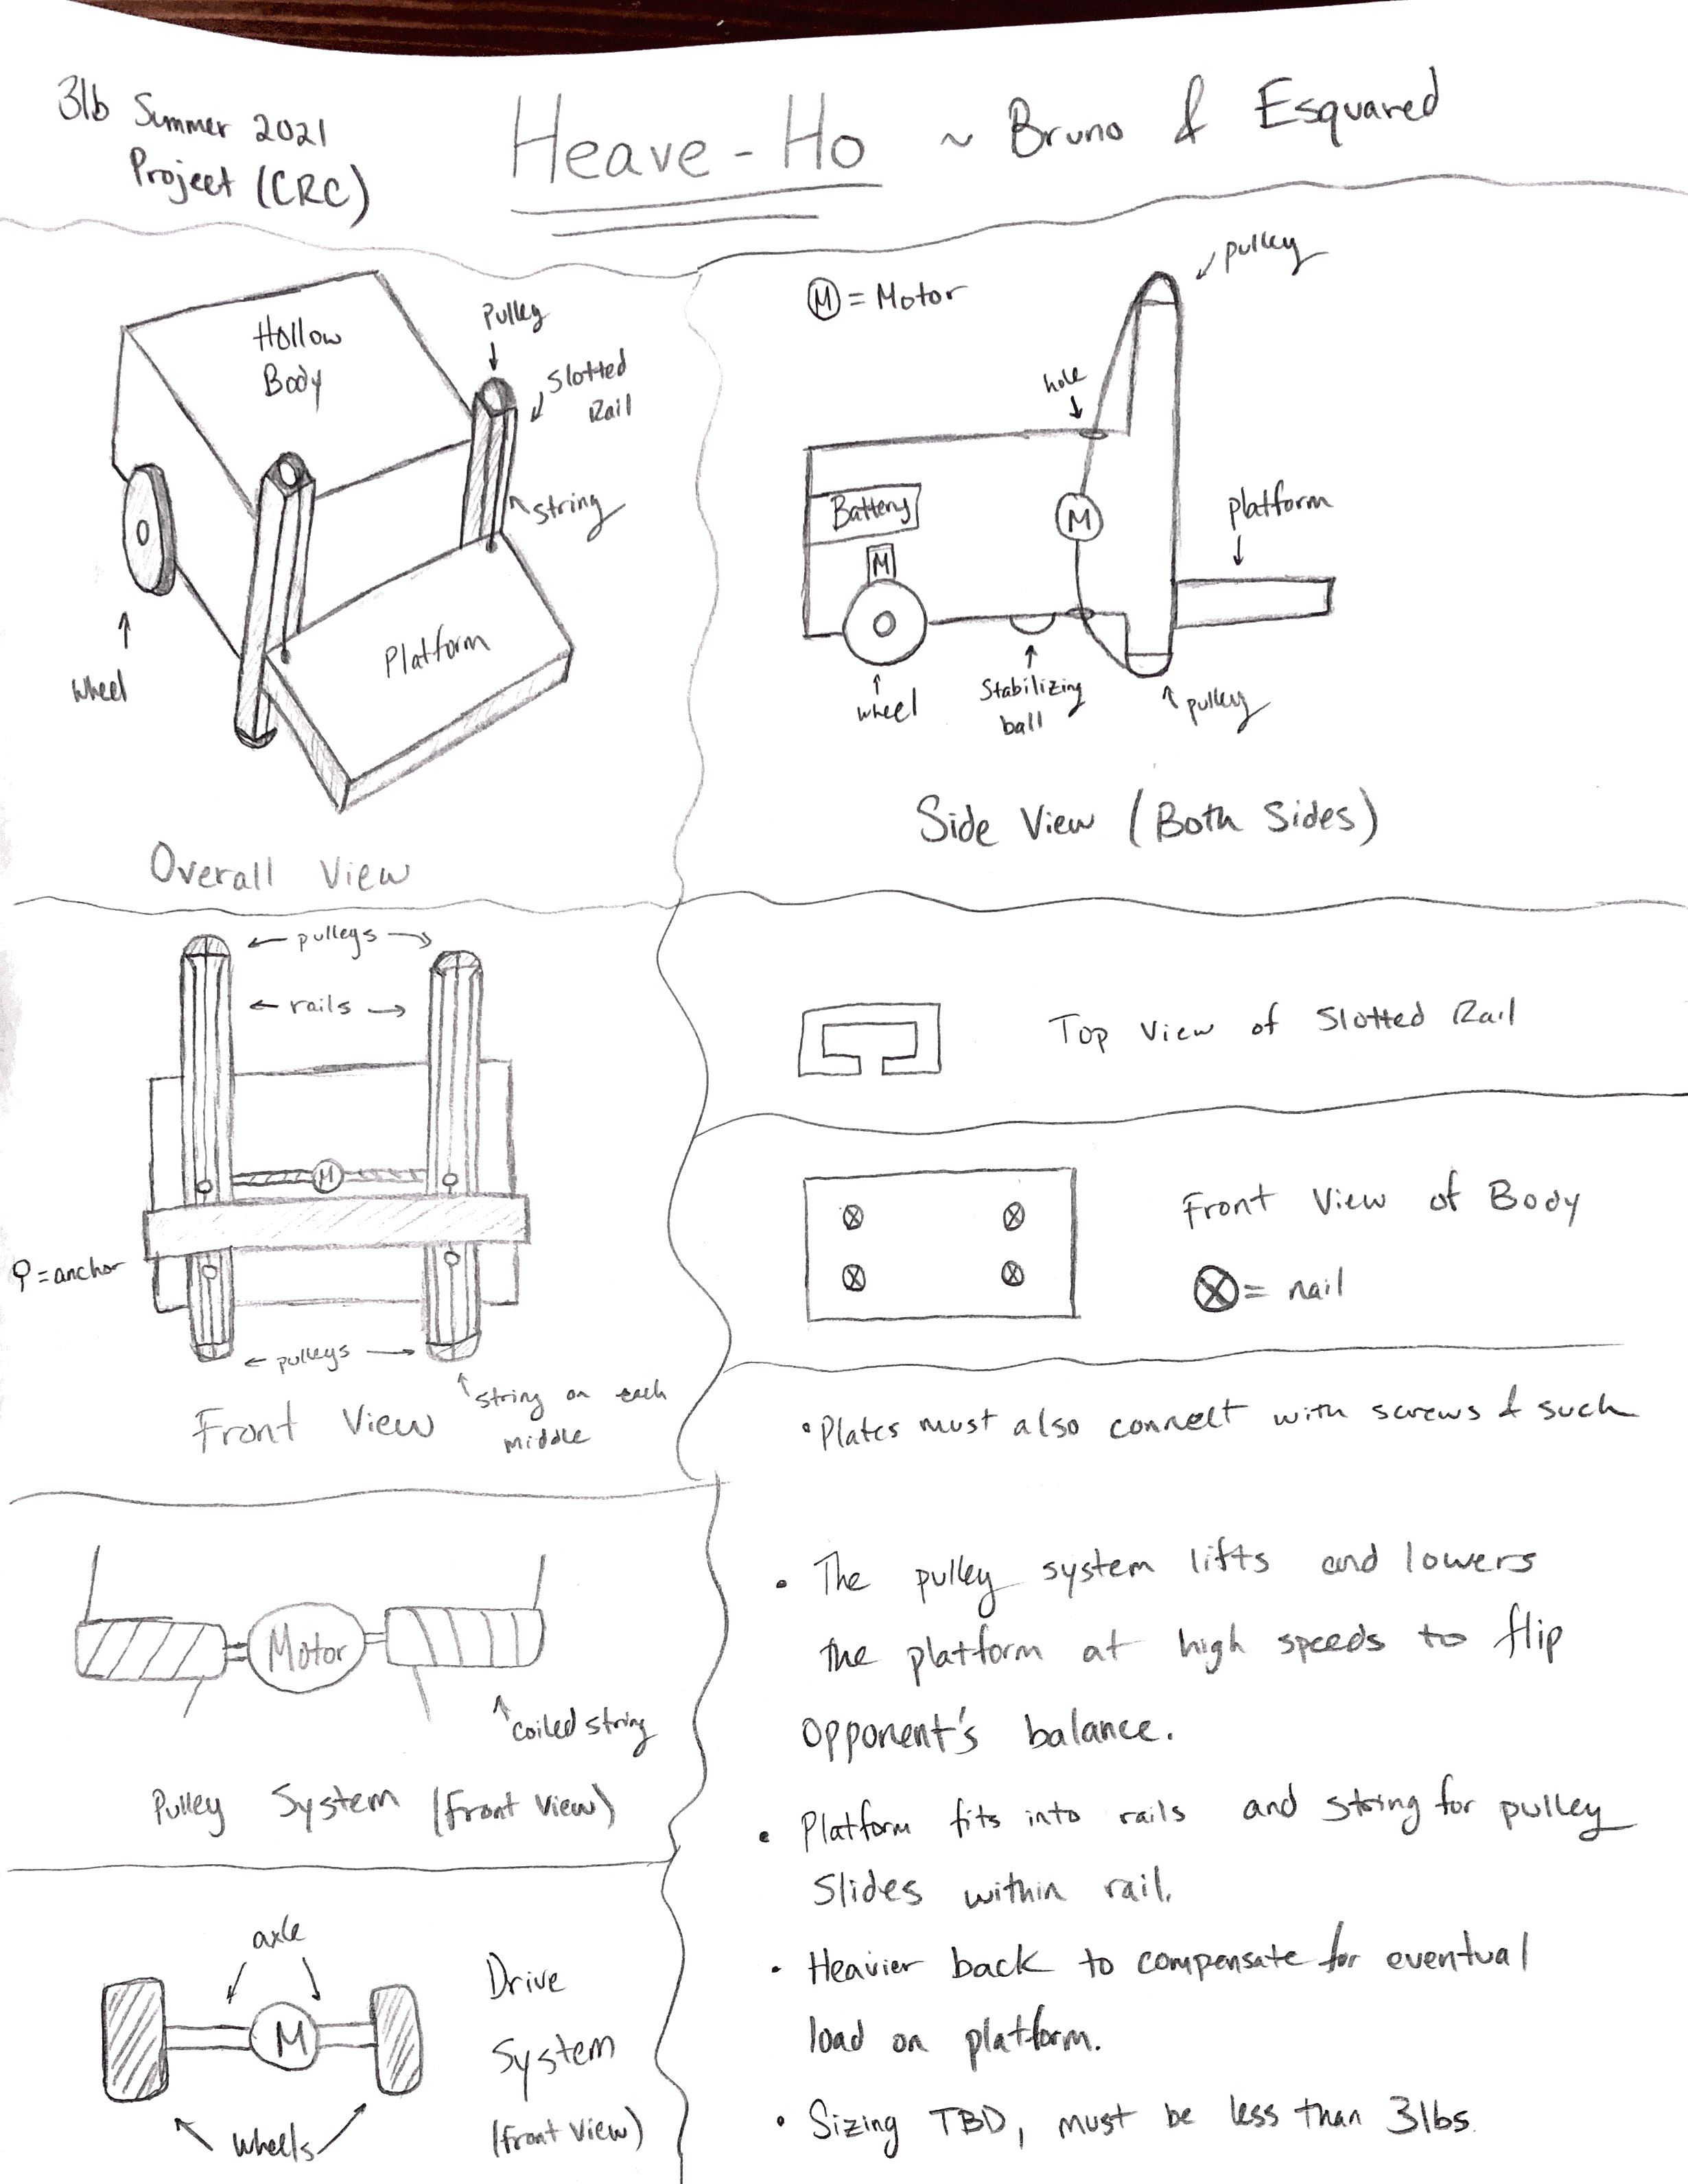 3lb Summer 2021
Project (CRC)
Heave-Ho ~ Bruno & Esquared
Hollow
Body
Pulley
Slotted
Rail
string
Platform
wheel
Overall View
Ⓜ = Motor
pulley
hole
Battery
M
M
platform
wheel
Stabilizing
ball
pulley
Side View (Both Sides)
← pulleys →
← rails →
M
⚲ = anchor
← pulleys →
string on each
middle
Front View
Top View of Slotted Rail
Front View of Body
⊗ = nail
• Plates must also connect with screws & such
Motor
coiled string
Pulley System (Front View)
axle
M
wheels
Drive
System
(Front View)
• The pulley system lifts and lowers
the platform at high speeds to flip
opponent's balance.
• Platform fits into rails and string for pulley
slides within rail.
• Heavier back to compensate for eventual
load on platform.
• Sizing TBD, must be less than 3lbs.